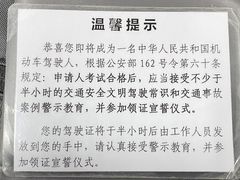 温馨提示
恭喜您即将成为一名中华人民共和国机
动车驾驶人，根据公安部 162 号令第六十条
规定：申请人考试合格后，应当接受不少于
半小时的交通安全文明驾驶常识和交通事故
案例警示教育，并参加领证宣誓仪式。
您的驾驶证将于半小时后由工作人员发
放到您的手中，请认真接受警示教育，并参
加领证宣誓仪式。